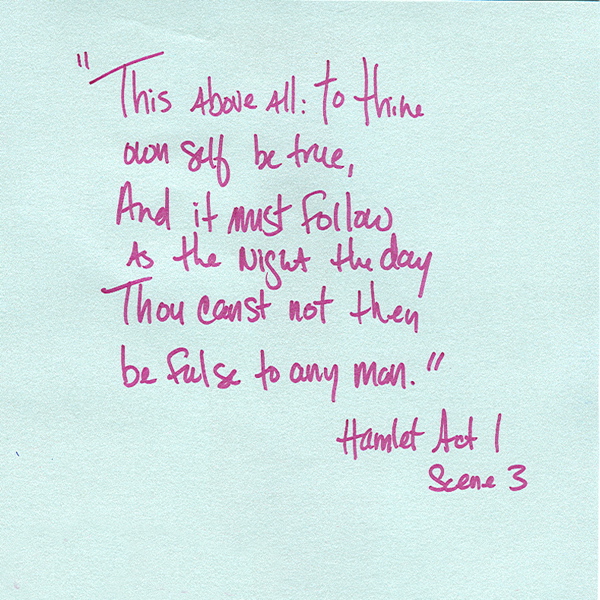 "This Above All: to thine
own self be true,
And it must follow
As the Night the day
Thou canst not then
be false to any man."
Hamlet Act 1
Scene 3